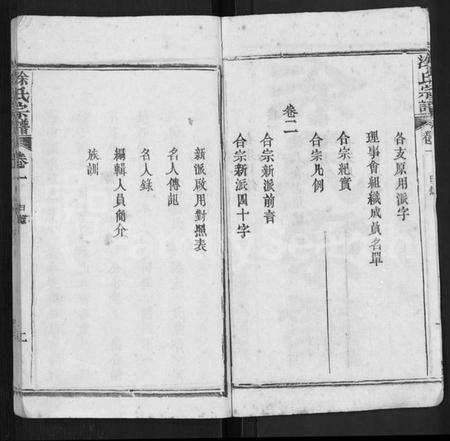 各支原用派字
理事會組織成員名單
合宗紀實
合宗凡例
卷二
合宗新派前言
合宗新派四十字
新派啟用對照表
名人傳記
名人錄
編輯人員簡介
族訓
徐氏宗譜
卷一
目錄
二